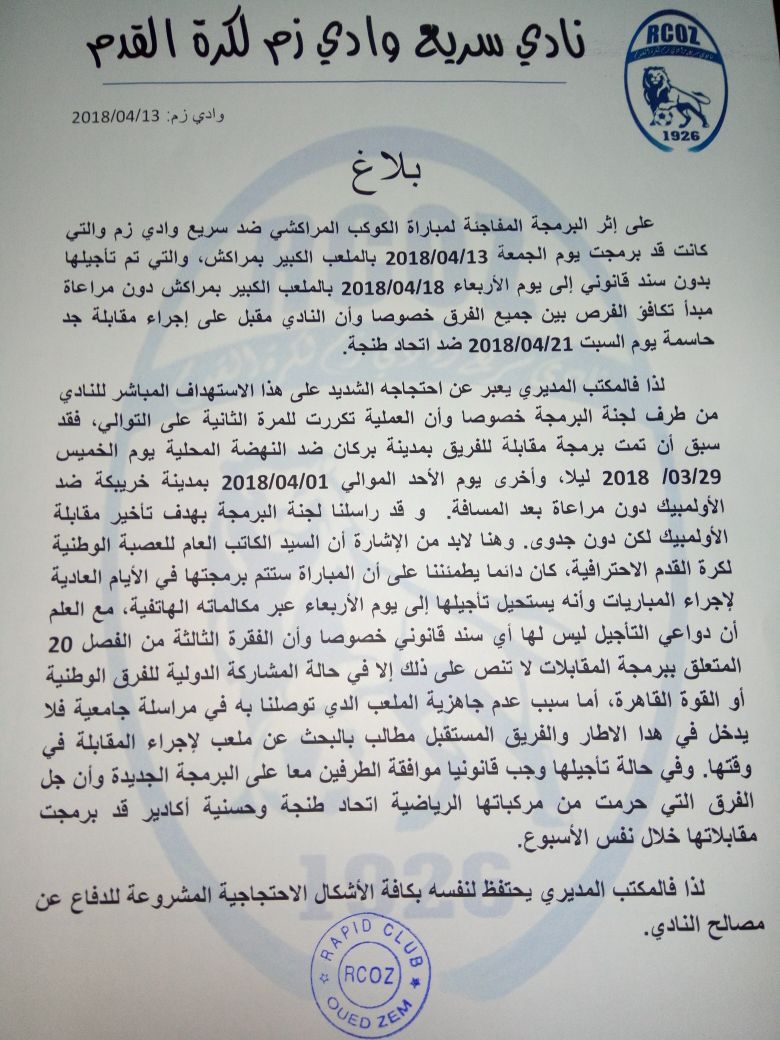 نادي سريع وادي زم لكرة القدم
RCOZ
1926
وادي زم: 2018/04/13
بلاغ
على إثر البرمجة المفاجئة لمباراة الكوكب المراكشي ضد سريع وادي زم والتي
كانت قد برمجت يوم الجمعة 2018/04/13 بالملعب الكبير بمراكش، والتي تم تأجيلها
بدون سند قانوني إلى يوم الأربعاء 2018/04/18 بالملعب الكبير بمراكش دون مراعاة
مبدأ تكافؤ الفرص بين جميع الفرق خصوصا وأن النادي مقبل على إجراء مقابلة جد
حاسمة يوم السبت 2018/04/21 ضد اتحاد طنجة.
لذا فالمكتب المديري يعبر عن احتجاجه الشديد على هذا الاستهداف المباشر للنادي
من طرف لجنة البرمجة خصوصا وأن العملية تكررت للمرة الثانية على التوالي، فقد
سبق أن تمت برمجة مقابلة للفريق بمدينة بركان ضد النهضة المحلية يوم الخميس
03/29/ 2018 ليلا، وأخرى يوم الأحد الموالي 2018/04/01 بمدينة خريبكة ضد
الأولمبيك دون مراعاة بعد المسافة. و قد راسلنا لجنة البرمجة بهدف تأخير مقابلة
الأولمبيك لكن دون جدوى. وهنا لابد من الإشارة أن السيد الكاتب العام للعصبة الوطنية
لكرة القدم الاحترافية، كان دائما يطمئننا على أن المباراة ستتم برمجتها في الأيام العادية
لإجراء المباريات وأنه يستحيل تأجيلها إلى يوم الأربعاء عبر مكالماته الهاتفية، مع العلم
أن دواعي التأجيل ليس لها أي سند قانوني خصوصا وأن الفقرة الثالثة من الفصل 20
المتعلق ببرمجة المقابلات لا تنص على ذلك إلا في حالة المشاركة الدولية للفرق الوطنية
أو القوة القاهرة، أما سبب عدم جاهزية الملعب الدي توصلنا به في مراسلة جامعية فلا
يدخل في هدا الاطار والفريق المستقبل مطالب بالبحث عن ملعب لإجراء المقابلة في
وقتها. وفي حالة تأجيلها وجب قانونيا موافقة الطرفين معا على البرمجة الجديدة وأن جل
الفرق التي حرمت من مركباتها الرياضية اتحاد طنجة وحسنية أكادير قد برمجت
مقابلاتها خلال نفس الأسبوع.
لذا فالمكتب المديري يحتفظ لنفسه بكافة الأشكال الاحتجاجية المشروعة للدفاع عن
مصالح النادي.
RAPID CLUB
RCOZ
OUED ZEM